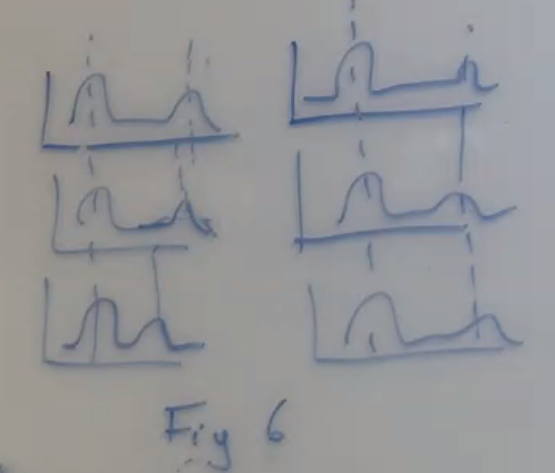 Fig 6